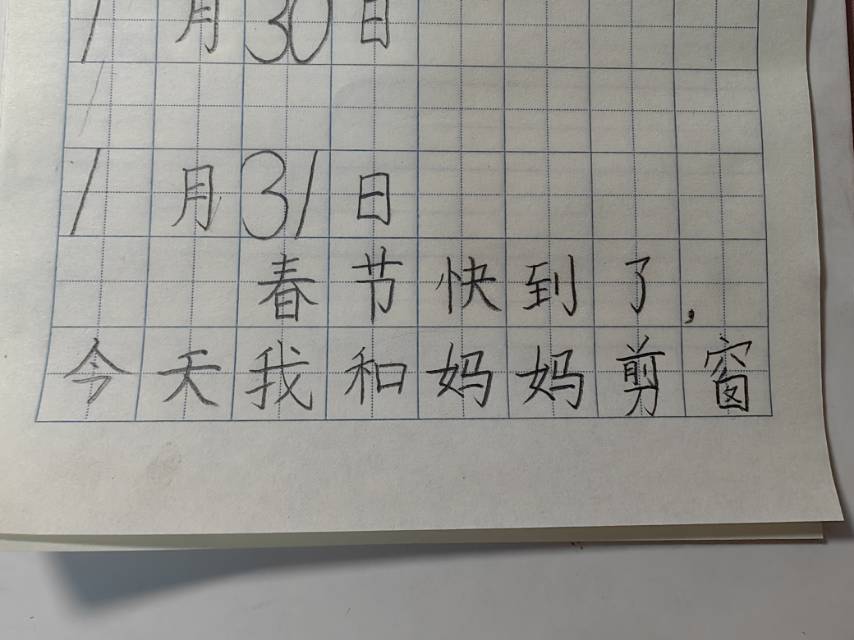 1月30日
1月31日
春节快到了,
今天我和妈妈剪窗